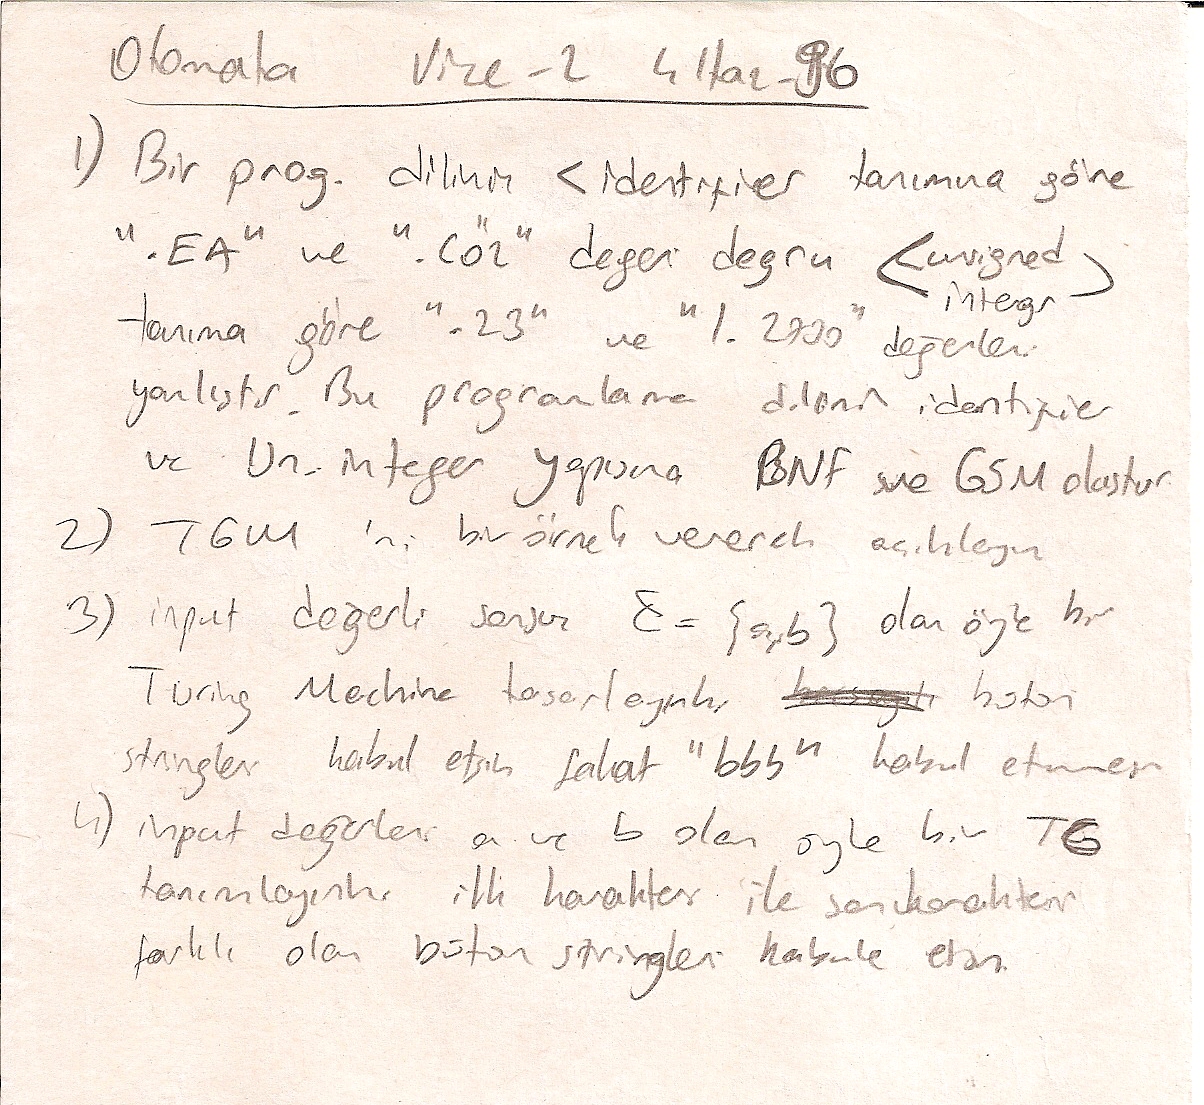 Otomata Vize-2 4 Haz-96
1) Bir prog. dilinin <identifier tanımına göre
".EA" ve ".CÖZ" değeri doğru <unsigned
integr>
tanıma göre ".23" ve "1. 2000" değerleri
yanlıştır. Bu programlama dilinin identifier
ve Un-integer yapısına BNF ve GSM oluştur
2) TGM 'ni bir örnek vererek açıklayın
3) input değerli sonsuz Σ = {a,b} olan öyle bir
Turing Machine tasarlayınki bütün
stringler kabul etsin fakat "bbb" kabul etmesin
4) input değerleri a ve b olan öyle bir TG
tanımlayınki ilk karakter ile son karakteri
farklı olan bütün stringleri kabule etsin